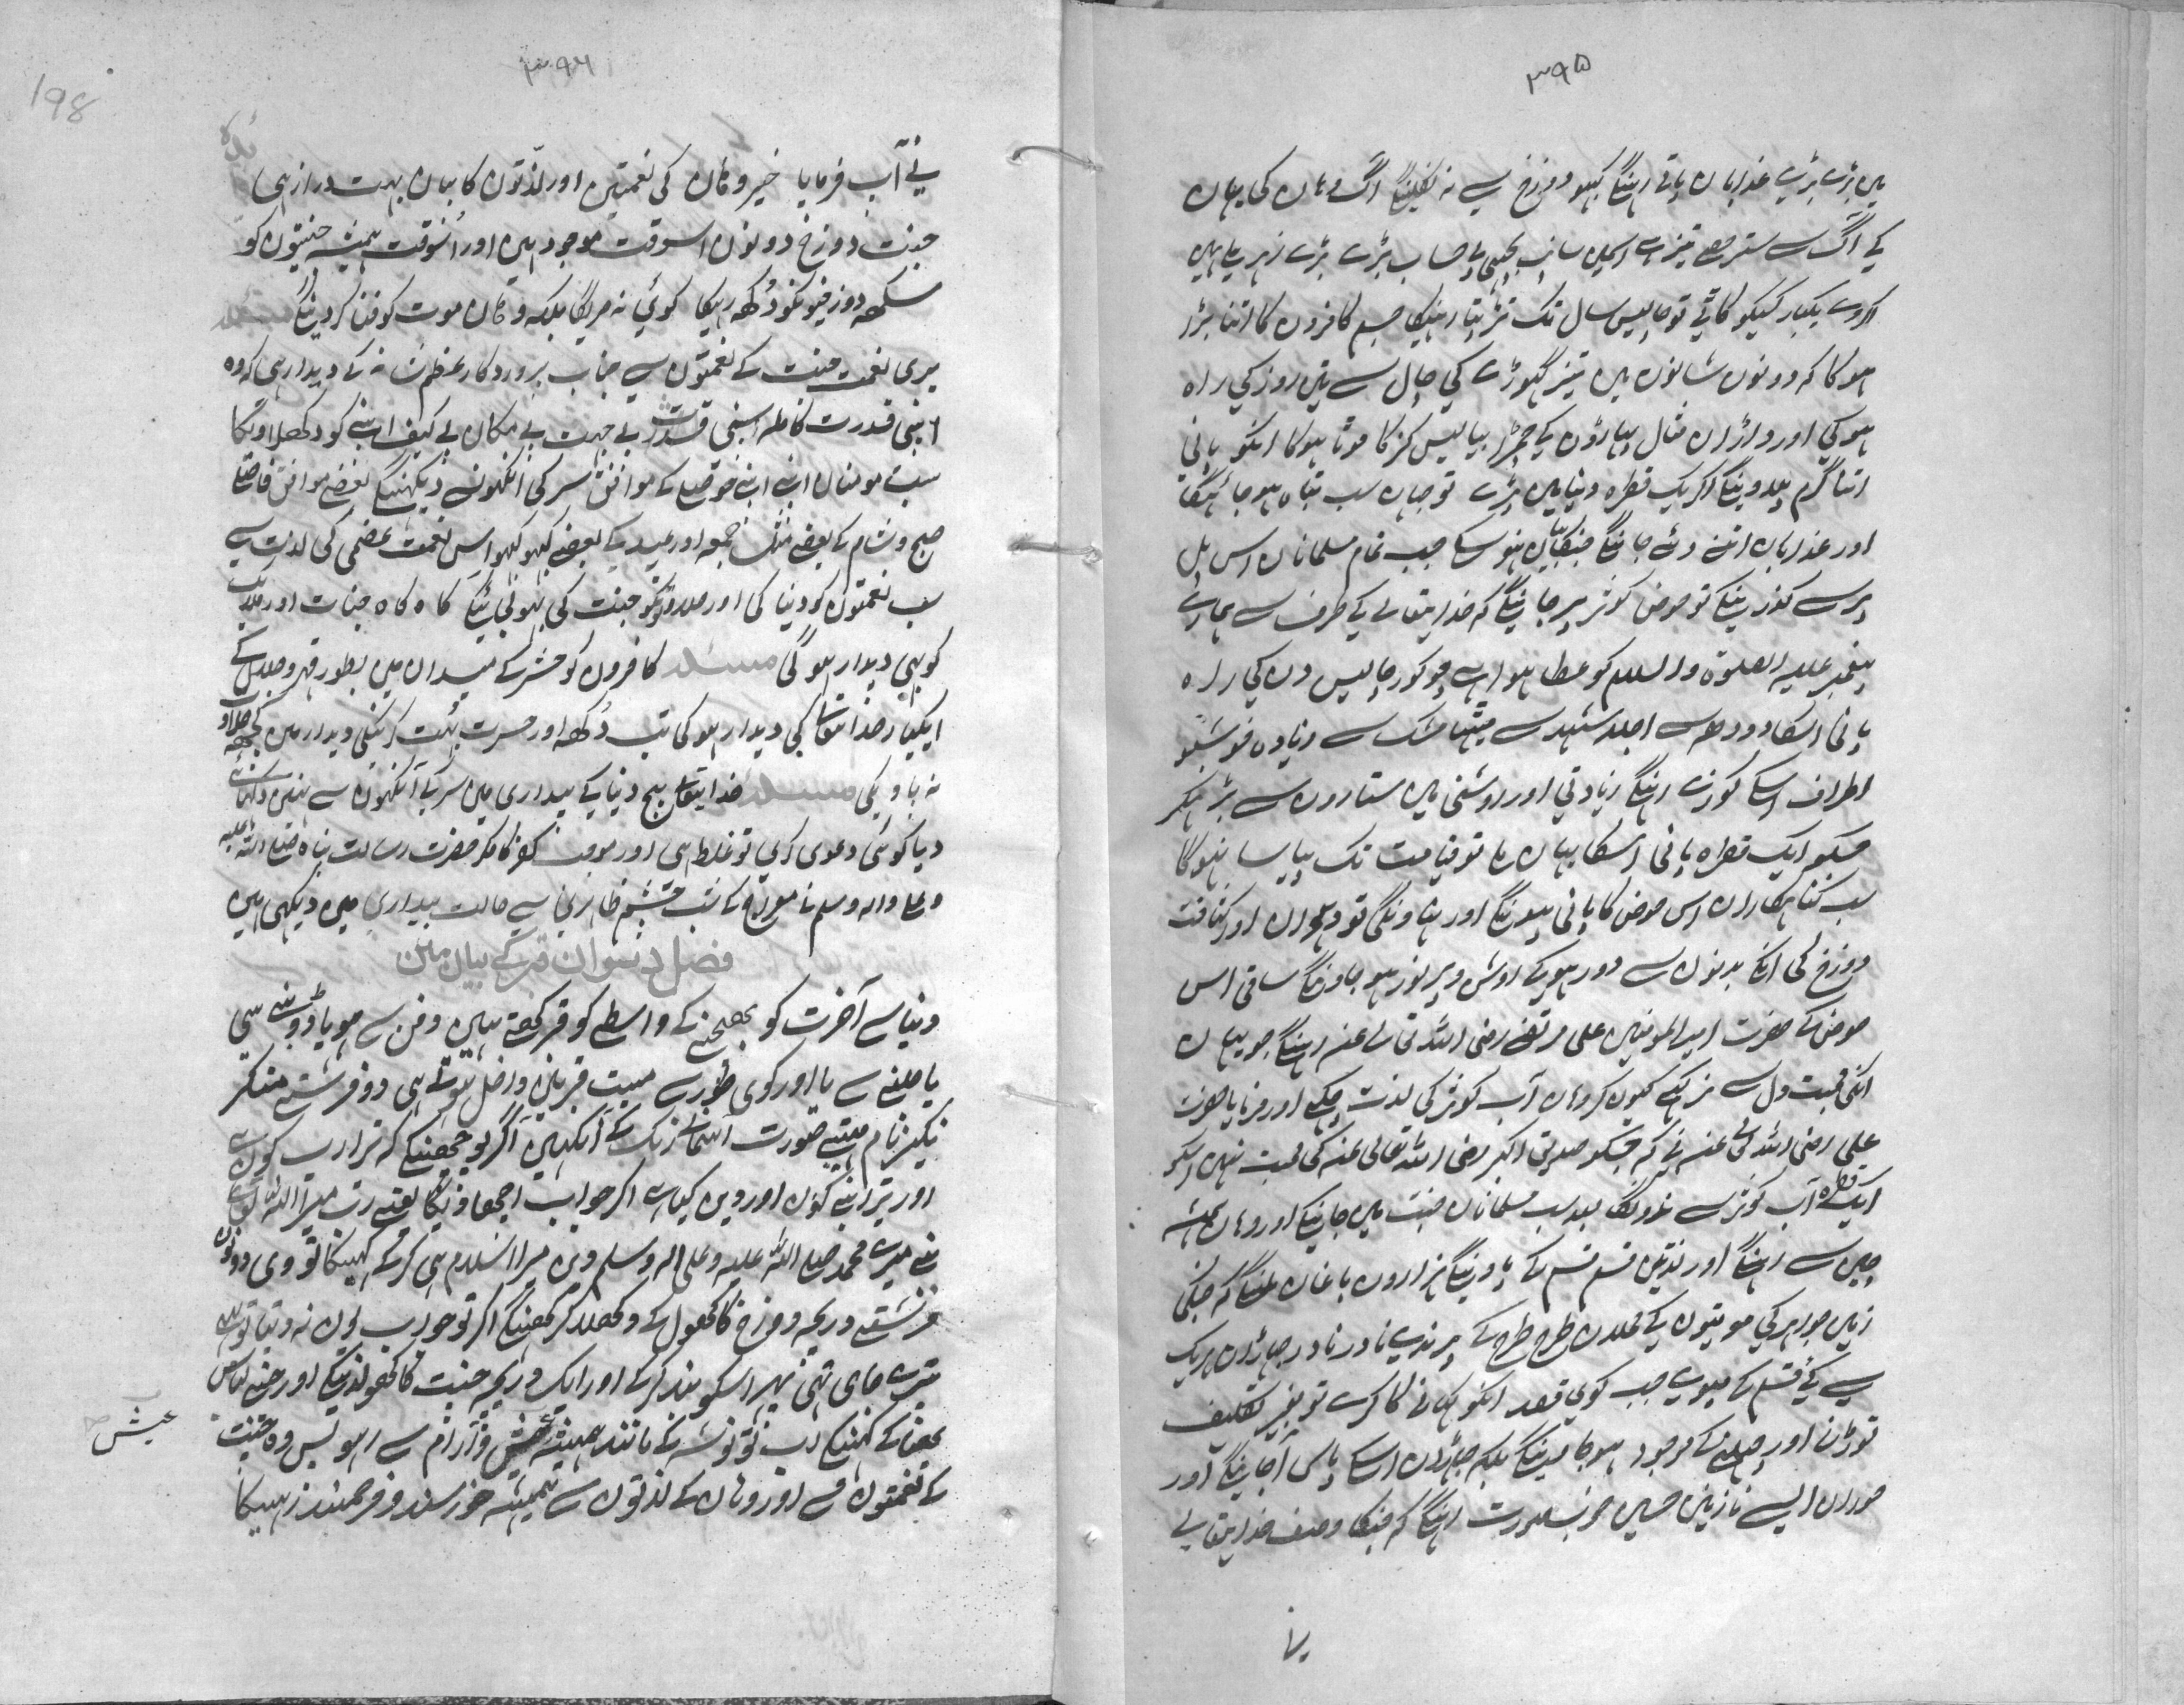 ۳۹۵
میں بڑے بڑے عذابان پاتے رہینگے کبہو دوزخ سے نہ نکلینگے آگ وہان کی یہان
کے آگ سے ستر حصے تیز ہے اسمیں سانپ بچھو بے حساب بڑے بڑے زہریلے ہیں
اگر وے یکبار کسیکو کاٹے تو چالیس سال تک تڑپتا رہیگا جسم کافرون کا اتنا بڑا
ہوگا کہ دونون شانون میں تیز گھوڑے کی چال سے تین روز کی راہ
ہوگی اور داڑان مثال پہاڑون کے چمڑا بیالیس گز کا موٹا ہوگا انکو پانی
اتنا گرم پلاوینگے اگر یک قطرہ دنیا میں پڑے تو جہان سب تباہ ہو جائیگا
اور عذابان اتنے دئے جائینگے جنکا بیان نہو سکے جب تمام مسلمانان اس پل
پر سے گذرینگے تو حوض کوثر پر جائینگے کہ خدایتعالے کے طرف سے ہمارے
پیغمبر علیہ الصلوۃ والسلام کو عطا ہوا ہے چوکور چالیس دن کی راہ
پانی اسکا دودھ سے اجلا شہد سے میٹھا مشک سے زیادہ خوشبو
اطراف اسکے کوزے رہینگے زیادتی اور روشنی میں ستارون سے بڑھکر
جسکو ایک قطرہ پانی اسکا یہان ملا تو قیامت تک پیاسا نہوگا
سب گناہگاران اس حوض کا پانی پیوینگے اور نہاوینگے تو دھوان اور کثافت
دوزخ کی انکے بدنون سے دور ہوکے روشن و پرنور ہو جاوینگے ساقی اس
حوض کے حضرت امیرالمومنین علی مرتضے رضی اللہ تعالے عنہ رہینگے جو یہان
انکی محبت دل سے نرکہے کیون کر وہان آب کوثر کی لذت چکہے اور فرمایا حضرت
علی رضی اللہ تعالی عنہ نے کہ جسکو صدیق اکبر رضی اللہ تعالی عنہ کی محبت نہیں اسکو
ایک قطرہ آب کوثر سے ندونگا بعد سب مسلمانان جنت میں جائینگے اور وہان ہمیشہ
چین سے رہینگے اور لذتین قسم قسم کے پاوینگے ہزارون باغان ملینگے کہ جنکی
زمین جواہر کی موتیون کے محلان طرح طرح کے پرندے نادر نادر جہاڑان ہریک
سے کئی قسم کے میوے جب کوی قصد انکو کہانے کا کرے تو بغیر تکلیف
توڑنے اور چہلنے کے موجود ہو جائینگے بلکہ جہاڑان اسکے پاس آجائینگے اور
حوران ایسے نازنین حسین خوبصورت رہینگے کہ جنکا وصف خدایتعالے
نے
۳۹۶
198
نے آپ فرمایا خیر وہان کی نعمتین اور لذتون کا بیان بہت دراز ہی
جنت دوزخ دونون اسوقت موجود ہین اور اسوقت ہمیشہ جنتیون کو
سکہہ دوزخیونکو دکھ رہیگا کوئی نہ مریگا بلکہ وہان موت کو فنا کردینگے مسئلہ
بڑی نعمت جنت کے نعمتون سے جناب پروردگار عظم شانہ کے دیدار ہی کہ وہ
اپنی قدرت کاملہ سے بے جہت بے مکان بے کیف اپنے کو دکھلاویگا
سب مومنان اپنے اپنے حوصلے کے موافق سر کی انکہون سے دیکہینگے بعضے موافق فاصلے
صبح و شام کے بعضے مثل جمعہ اور عید کے بعضے کبہو کبہو اس نعمت عظمی کی لذت سے
سب نعمتون کو دنیا کی اور جنت کی بہول جائینگے گاہ گاہ جنات اور ملائک
کو بہی دیدار ہوگی مسئلہ کافرون کو حشر کے میدان میں بطور قہر و جلال کے
ایکبار خدایتعالے کی دیدار ہوگی تب دکھ اور حسرت بہت کرینگے دیدار میں کچھ
نہ پاوینگے مسئلہ خدایتعالے بیچ دنیا کے بیداری میں سر کے آنکہون سے نہیں دکھائے
دیا کوئی دعوی کرے تو غلط ہی اور موجب کفر کا مگر حضرت رسالت پناہ صلے اللہ علیہ
وعلے والہ وسلم نے معراج کے شب چشم ظاہری سے حالت بیداری میں دیکہی ہین
فصل دسوان قبر کے بیان مین
دنیا سے آخرت کو پہنچنے کے واسطے کو قبر کہتے ہین دفن سے ہو یا ڈوبنے سے
یا جلنے سے یا اور کوی طور سے میت قبر میں داخل ہوتے ہی دو فرشتے منکر
نکیر نام مہیب صورت آسمانی رنگ کے آنکہین آکر پوچھینگے کہ تیرا رب کون ہے
اور تیرا نبی کون اور دین کیا ہے اگر جواب اچھا دیگا یعنے رب میرا اللہ تعالے
نبی میرے محمد صلے اللہ علیہ وعلی الہ وسلم دین میرا اسلام ہی کر کے کہیگا تو وی دونون
فرشتے دریچہ دوزخ کا کھول کے دکھلا کر کہینگے اگر تو جواب یون نہ دیتا تو یہ
تیرے جای تہی پہر اسکو بند کر کے اور ایک دریچہ جنت کا کھولدینگے اور جنتی لباس
پہنا کے کہینگے اب تو نوشہ کے مانند ہمیشہ عیش و آرام سے رہو پس وہ جنت
کے نعمتون سے اور وہان کے لذتون سے ہمیشہ خورسند و فرحمند رہیگا
عیش